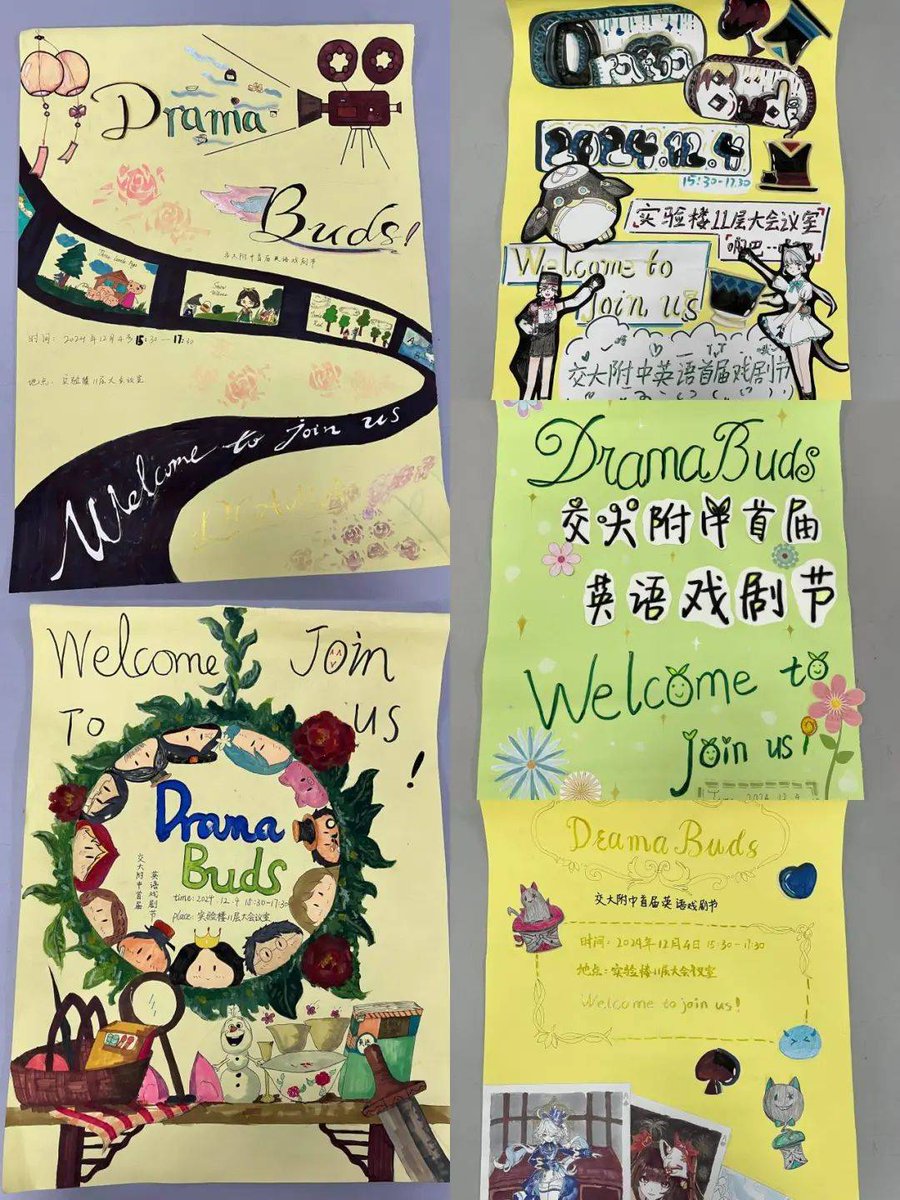 Drama
Buds!
交大附中首届英语戏剧节
Snow
White
时间：2024年12月4日 15:30—17:30
地点：实验楼11层大会议室
Welcome to join us
2024.12.4
15:30-17:30
实验楼11层大会议室
Welcome to
join us
交大附中英语首届戏剧节
Drama Buds
交大附中首届
英语戏剧节
Welcome to
join us!
Time: 2024.12.4
Welcome Join
To us!
Drama
Buds
交大附中首届
英语戏剧节
time: 2024.12.4 15:30-17:30
place: 实验楼11层大会议室
Drama Buds
交大附中首届英语戏剧节
时间：2024年12月4日 15:30-17:30
地点：实验楼11层大会议室
Welcome to join us!